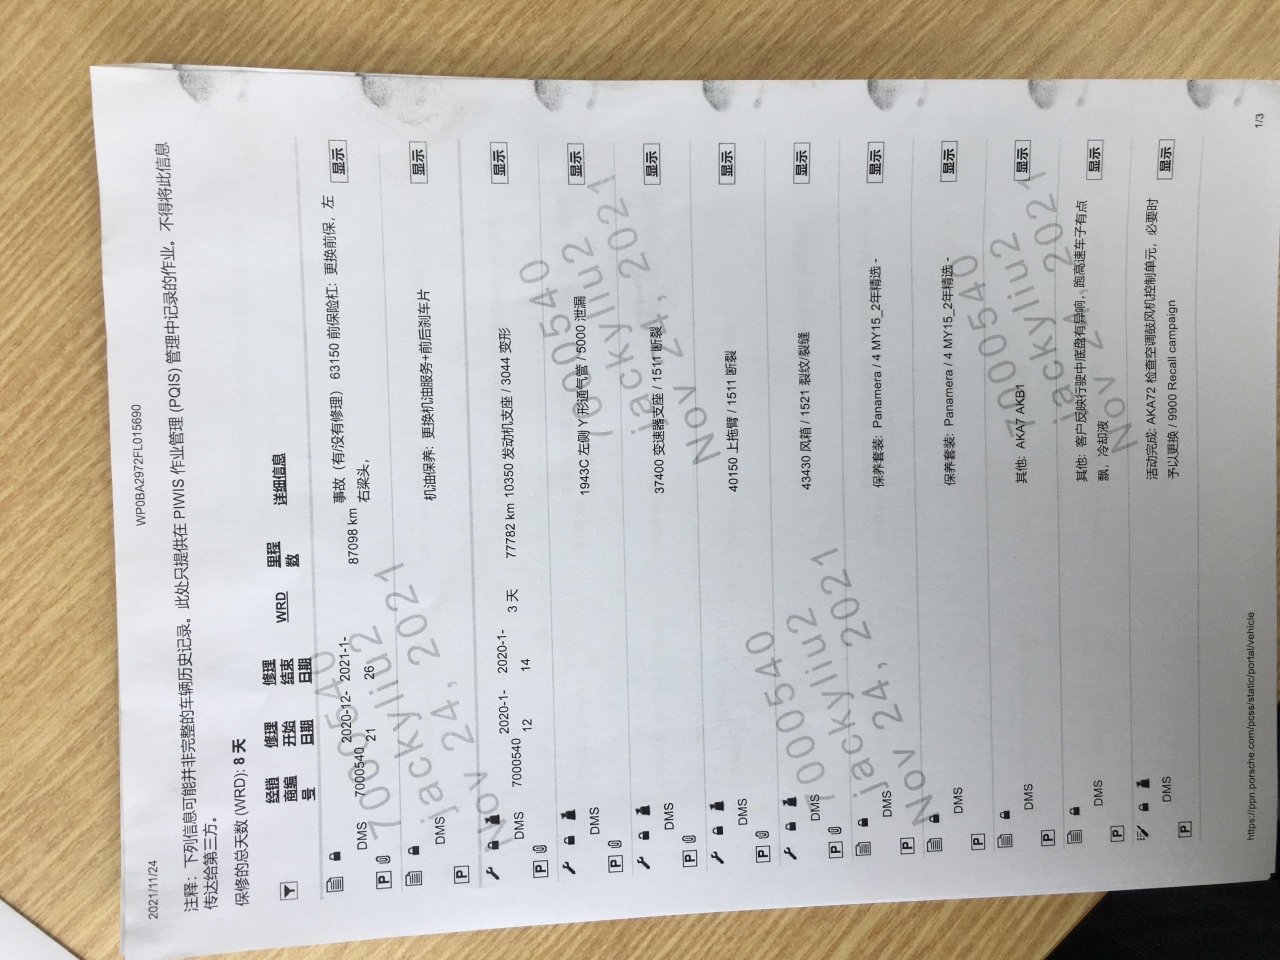 2021/11/24
WP0BA2972FL015690
注释：下列信息可能并非完整的车辆历史记录。此处只提供在 PIWIS 作业管理 (PQIS) 管理中记录的作业。不得将此信息
传达给第三方。
保修的总天数 (WRD): 8 天
经销商编号 修理开始日期 修理结束日期 WRD 里程数 详细信息
DMS 7000540 2020-12-21 2021-1-26 87098 km 事故（有/没有修理） 63150 前保险杠：更换前保，左
右梁头， 显示
P
DMS 机油保养：更换机油服务+前后刹车片 显示
P
DMS 7000540 2020-1-12 2020-1-14 3 天 77782 km 10350 发动机支座 / 3044 变形 显示
P
DMS 1943C 左侧 Y 形通气管 / 5000 泄漏 显示
P
DMS 37400 变速器支座 / 1511 断裂 显示
P
DMS 40150 上拖臂 / 1511 断裂 显示
P
DMS 43430 风箱 / 1521 裂纹/裂缝 显示
P
DMS 保养套装：Panamera / 4 MY15_2年精选 - 显示
P
DMS 保养套装：Panamera / 4 MY15_2年精选 - 显示
P
DMS 其他：AKA7 AKB1 显示
P
DMS 其他：客户反映行驶中底盘有异响，跑高速车子有点
飘，冷却液 显示
P
DMS 活动完成: AKA72 检查空调鼓风机控制单元，必要时
予以更换 / 9900 Recall campaign 显示
P
7000540
jackyliu2
Nov 24, 2021
7000540
jackyliu2
Nov 24, 2021
7000540
jackyliu2
Nov 24, 2021
7000540
jackyliu2
Nov 24, 2021
https://ppn.porsche.com/pcss/static/portal/vehicle
1/3